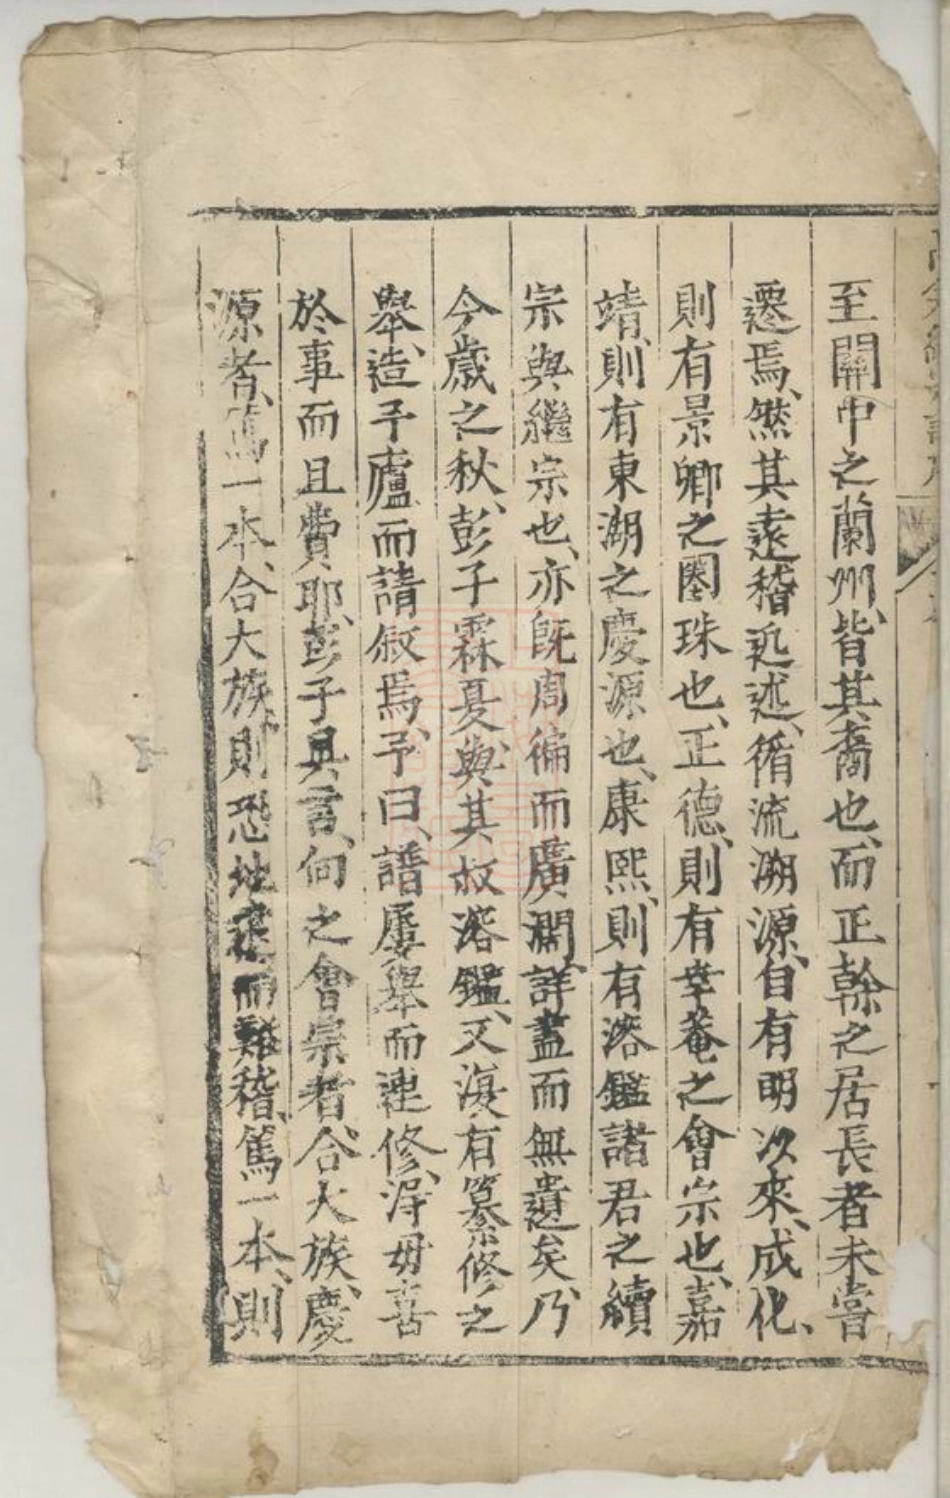 至關中之蘭州、皆其裔也、而正幹之居長者未嘗
遷焉、然其遠稽近述、循流溯源、自有明以來、成化、
則有景卿之圏珠也、正德、則有幸菴之會宗也、嘉
靖、則有東湖之慶源也、康熙、則有溶鑑諸君之續
宗與繼宗也、亦旣周徧而廣濶、詳盡而無遺矣、乃
今歲之秋、彭子霖夏、與其叔溶鑑、又復有纂修之
舉、造予廬而請叙焉、予曰、譜屢舉而連修、得毋喜
於事而且費耶、彭子具言、向之會宗者、合大族、慶
源者、篤一本、合大族、則恐地遠而難稽、篤一本、則